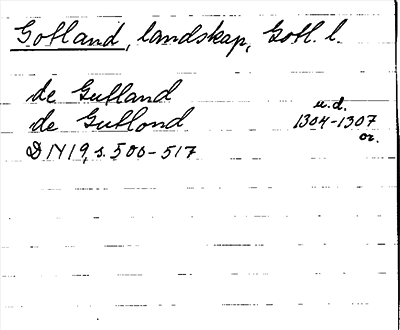 Gotland, landskap, Gotl. l.
de Gutland
u.d.
de Gutlond 1304-1307
or.
DN 19, s. 500-517